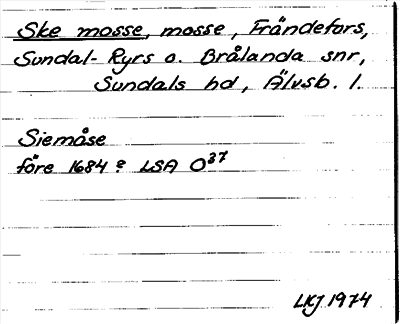 Ske mosse, mosse, Frändefors,
Sundal-Ryrs o. Brålanda snr,
Sundals hd, Älvsb. l.
Siemåse
före 1684? LSA O37
LKJ 1974